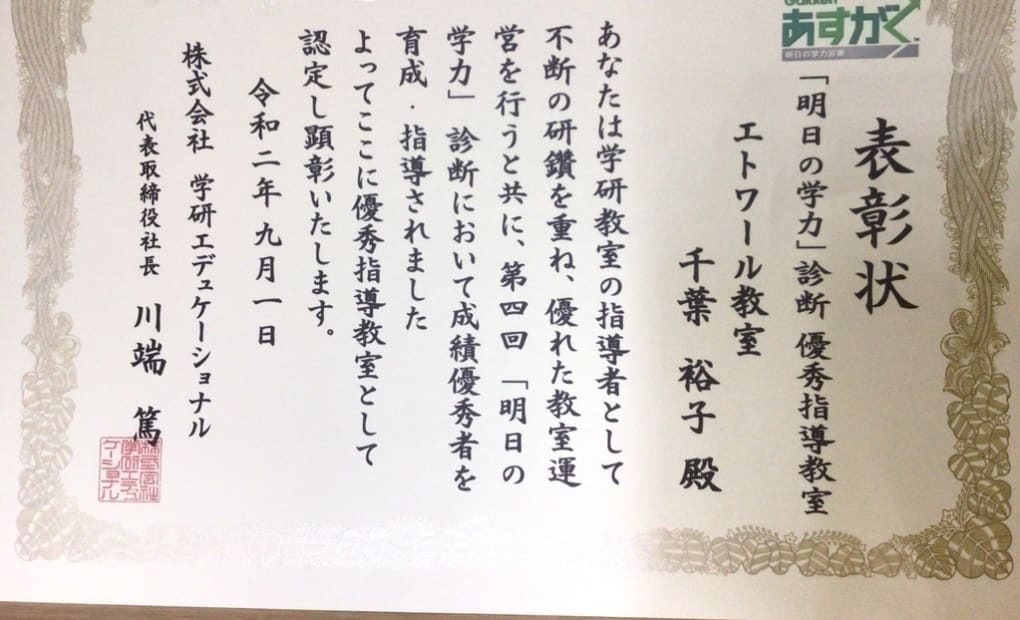 Gakken
あすがく
明日の学力診断
表彰状
「明日の学力」診断 優秀指導教室
エトワール教室
千葉 裕子 殿
あなたは学研教室の指導者として
不断の研鑽を重ね、優れた教室運
営を行うと共に、第四回 「明日の
学力」 診断において成績優秀者を
育成・指導されました
よってここに優秀指導教室として
認定し顕彰いたします。
令和二年九月一日
株式会社 学研エデュケーショナル
代表取締役社長 川端 篤
株式会社
学研エデュ
ケーショナル